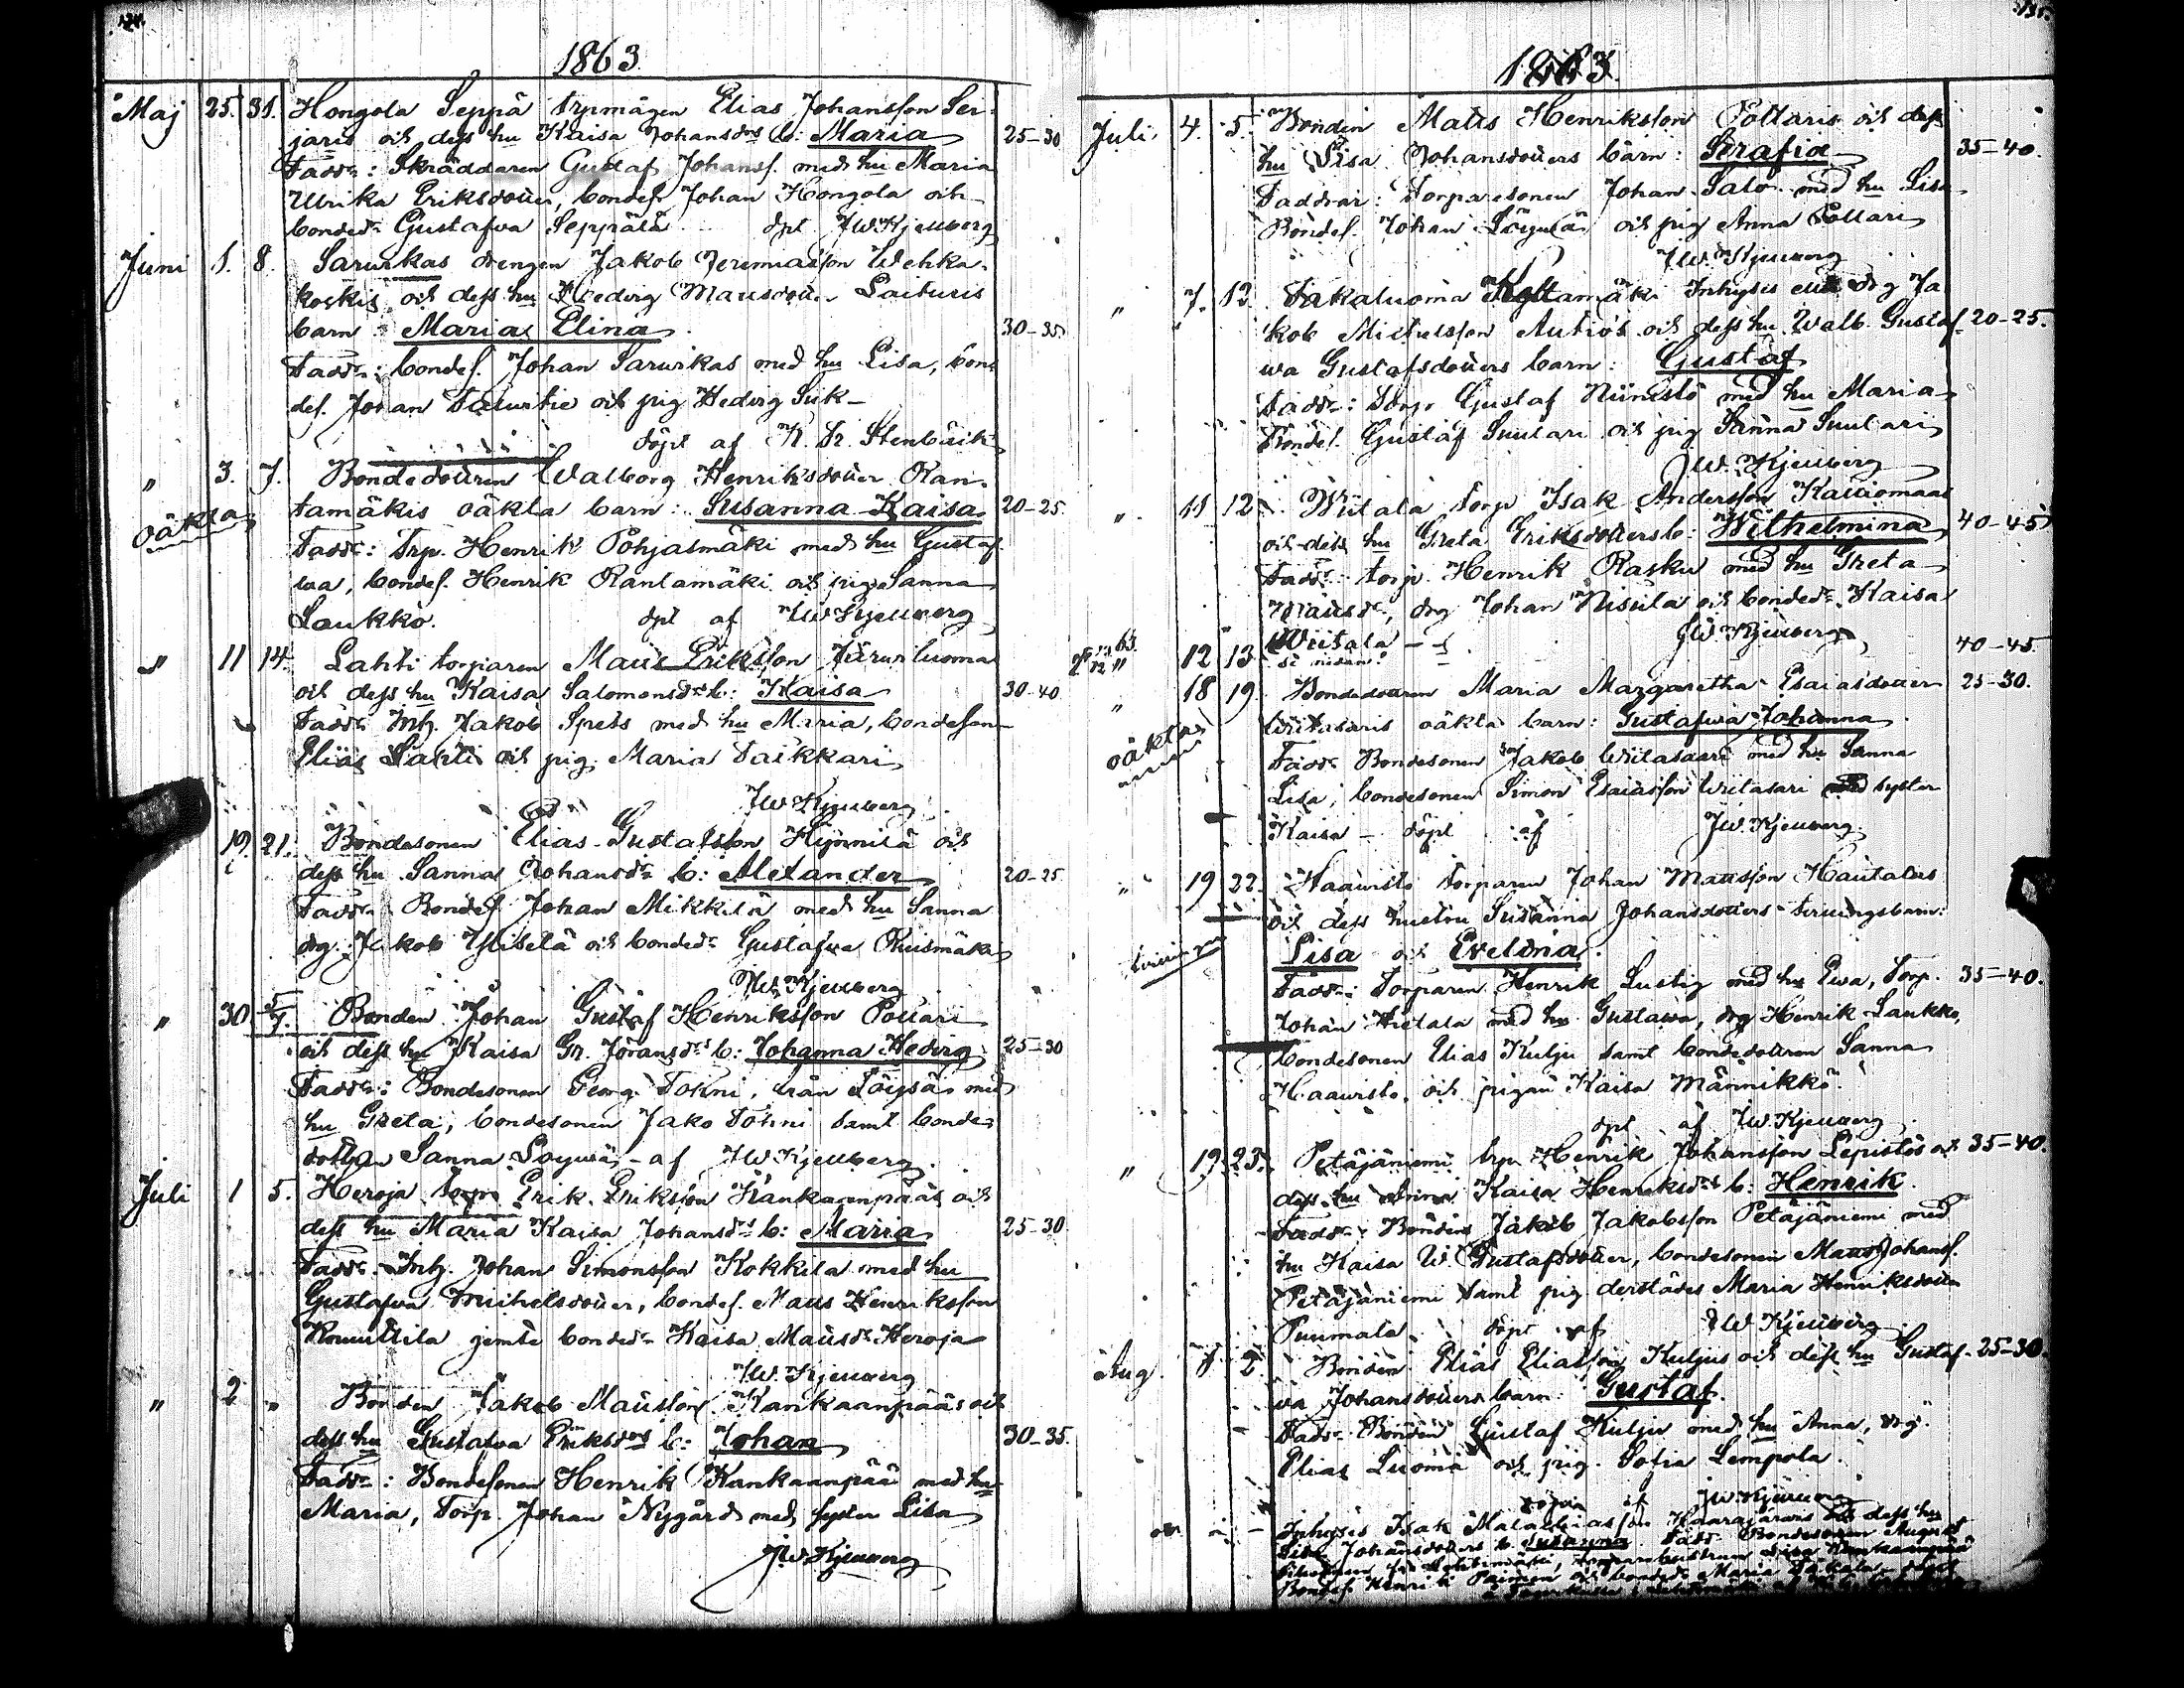 124.
1863
Maj 25. 31. Hongola Seppä trpmågen Elias Johansson Ser-
jaris och dess hu Kaisa Johansdrs b: Maria 25-30
Faddr: Skräddaren Gustaf Johanss. med hu Maria
Ulrika Eriksdotter, bondes. Johan Hongola och
bondedr Gustafva Seppälä dpt JWKjellberg
Juni 1. 8. Sarvikas drengen Jakob Jeremiasson Wehka-
koskis och dess hu Hedvig Mattsdotter Laituris
barn: Maria Elina 30-35
Faddr: bondes. Johan Sarvikas med hu Lisa, bon-
des. Johan och pig Hedvig
döpt af K. Fr. Stenbäck
" 3. 7. Bondedottren Walborg Henriksdotter Ran-
oäkta
tamäkis oäkta barn: Susanna Kaisa 20-25.
Faddr: Trp. Henrik Pohjasmäki med hu Gustaf-
va, bondes. Henrik Rantamäki och pig Sanna
Laukko. dpt af JWKjellberg
" 11 14. Lahti torparen Matts Eriksson Järviluoma
och dess hu Kaisa Salomonsdrs b: Kaisa 30-40
Faddr Inh. Jakob Spets med hu Maria, bondeson
Elias Lahti och pig Maria Taikkari
JWKjellberg
19. 21. Bondesonen Elias Gustafsson Hynnilä och
dess hu Sanna Johansdr b: Alexander 20-25
Faddr Bondes. Johan Mikkilä med hu Sanna
drg. Jakob och bondedr Gustafva Ruismäki
JWKjellberg
" 30 5/7. Bonden Johan Gustaf Henriksson Pollari
och dess hu Kaisa Gr. Göransdrs b: Johanna Hedvig 25-30
Faddr: Bondesonen Georg Tohni, från Töysä med
hu Greta, bondesonen Jako Tohni samt bonde-
dottren Sanna af JWKjellberg
Juli 1 5. Heroja torp. Erik Eriksson Kankaanpääs och
dess hu Maria Kaisa Johansdr b: Maria 25-30.
Faddr. Inh. Johan Simonsson Kokkila med hu
Gustafva Michelsdotter, bondes. Matts Henriksson
Komulila jemte bondedr Kaisa Mattsdr Heroja
JWKjellberg
" 2 " Bonden Jakob Mattsson Kankaanpääs och
dess hu Gustafva Eriksdrs b: Johan 30-35.
Faddr: Bondesonen Henrik Kankaanpää med hu
Maria, Torp. Johan Nygård med syster Lisa
JWKjellberg
125.
1863.
Juli 4. 5. Bonden Matts Henriksson Pollaris och dess
hu Lisa Johansdotters barn: Serafia 35-40.
Faddrar: Torparesonen Johan Salo med hu Lisa
Bondes. Johan och pig Anna Pollari
JWKjellberg
" 7. 12. Sakaluoma Koltamäki Inhyses drg Ja
kob Michelsson Autios och dess hu Walb. Gustaf- 20-25.
va Gustafsdotters barn: Gustaf
Faddr: Torp. Gustaf Niinistö med hu Maria
Bondes. Gustaf Luulari och pig Sanna Luulari
JW. Kjellberg
" 11 12 Wiitala Torp Isak Andersson Kalliomaas
och dess hu Greta Eriksdotters b: Wilhelmina 40-45
Faddr: torp. Henrik Rasku med hu Greta
Mattsdr, drg Johan Nisula och bondedr Kaisa
Wiitala JW Kjellberg
12 13 se nedan 40-45.
" 18 19. Bondedottren Maria Margaretha Esaiasdotter 25-30.
oäkta
Wiitasaris oäkta barn: Gustafwa Johanna
Faddr Bondesonen Jakob Wiitasaari med hu Sanna
Lisa, bondesonen Simon Esaiasson Wiitasari med syster
Kaisa - döpt af JW. Kjellberg
" 19 22. Haavisto torparen Johan Mattsson Hautalas
och dess hustru Susanna Johansdotters tvillingsbarn:
tvillingar
Lisa och Evelina.
Faddr: Torparen Henrik Lustig med hu Eva, Torp. 35-40.
Johan Hietala med hu Gustawa, drg Henrik Laukko,
bondesonen Elias Kulju samt bondedottren Sanna
Haavisto, och pigan Kaisa Männikkö.
dpt af JWKjellberg
" 19. 23. Petäjäniemi trp. Henrik Johansson Lepistös och 35-40.
dess hu Anna Kaisa Henriksdrs b: Henrik.
Faddr: Bonden Jakob Jakobsson Petäjäniemi med
hu Kaisa W. Gustafsdotter, bondesonen Matts Johanss.
Petäjäniemi samt pig derstädes Maria Henriksdotter
Puumala. döpt af JWKjellberg
Aug. 1 2. Bonden Elias Eliasson Kuljus och dess hu Gustaf- 25-30.
va Johansdotters barn: Gustaf.
Faddr Bonden Gustaf Kulju med hu Anna, drg
Elias Luoma och pig. Sofia Lempola.
JWKjellberg
Inhyses Isak Haarajärvis och dess hu
Lisa Johansdotters b: Susanna. Faddr. Bondesonen August
Bondes. Henrik och bondedr Maria